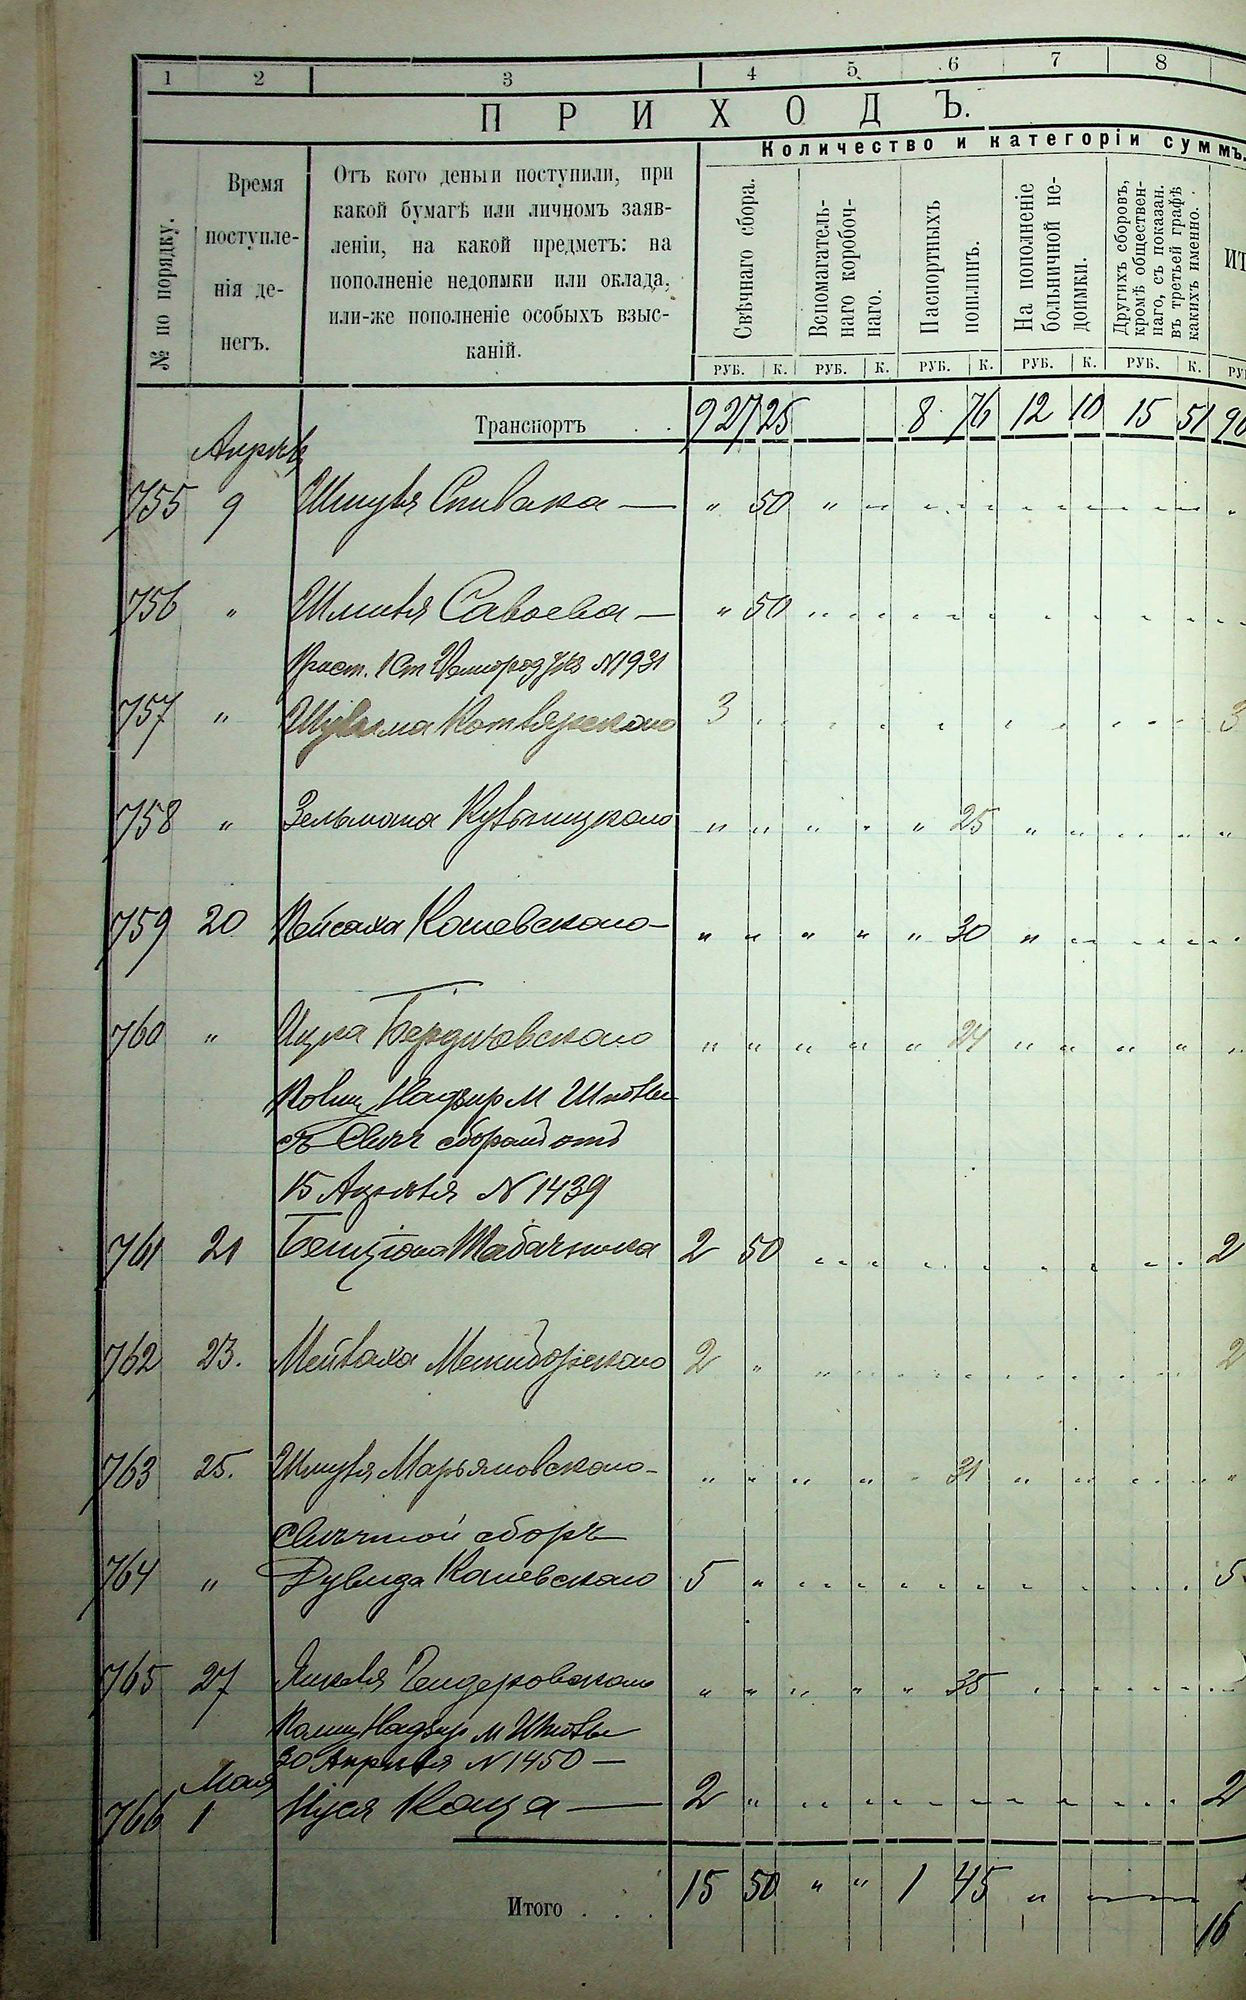 1 2 3 4 5 6 7 8
ПРИХОДЪ.
Количество и категоріи суммъ.
№ по порядку.
Время поступле-нія де-негъ.
Отъ кого деньги поступили, при
какой бумагѣ или личномъ заяв-
леніи, на какой предметъ: на
пополненіе недоимки или оклада,
или-же пополненіе особыхъ взыс-
каній.
Свѣчнаго сбора.
Вспомагатель-
наго коробоч-
наго.
Паспортныхъ
пошлинъ.
На пополненіе
больничной не-
доимки.
Другихъ сборовъ,
кромѣ обществен-
наго, съ показан.
въ третьей графѣ
какихъ именно.
РУБ. К. РУБ. К. РУБ. К. РУБ. К. РУБ. К.
Транспортъ . . 927 25 8 76 12 10 15 51
755 9 Шмуля Спивака — " 50 " "
756 " Шмиля — " 50
№ 931
757 " Котлярскаго 3 3
758 " Зельмана Кульчицкаго " " " " " 25 " "
759 20 Пейсаха Кошевскаго — " " " " " 30 "
760 " Ицка Бердичовскаго " " " " " 24 " " " "
Надзир м Шполы
сборамъ отъ
15 Апрѣля № 1439
761 21 Бенціона Табачника 2 50 2
762 23. Меджибожскаго 2 " 2
763 25. Шмуля Марьяновскаго — " " " " 31 "
Свѣчной сборъ
764 " Дувида Кошевскаго 5 " 5
765 27 " " " " " 35
Надзир м Шполы
30 Апрѣля № 1450 —
Мая
766 1 Нуся Каца — 2 " 2
Итого . . . 15 50 " " 1 45 "
16